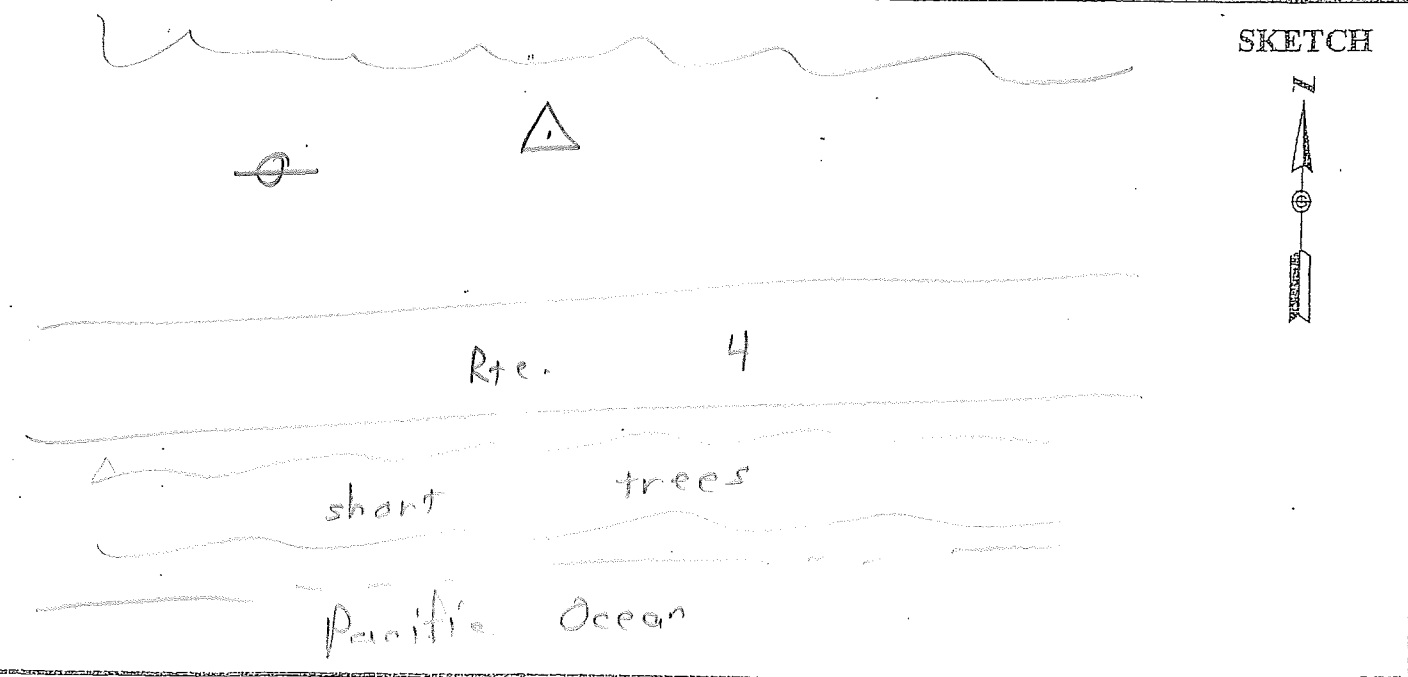 SKETCH
N
Rte. 4
short trees
Pacific Ocean